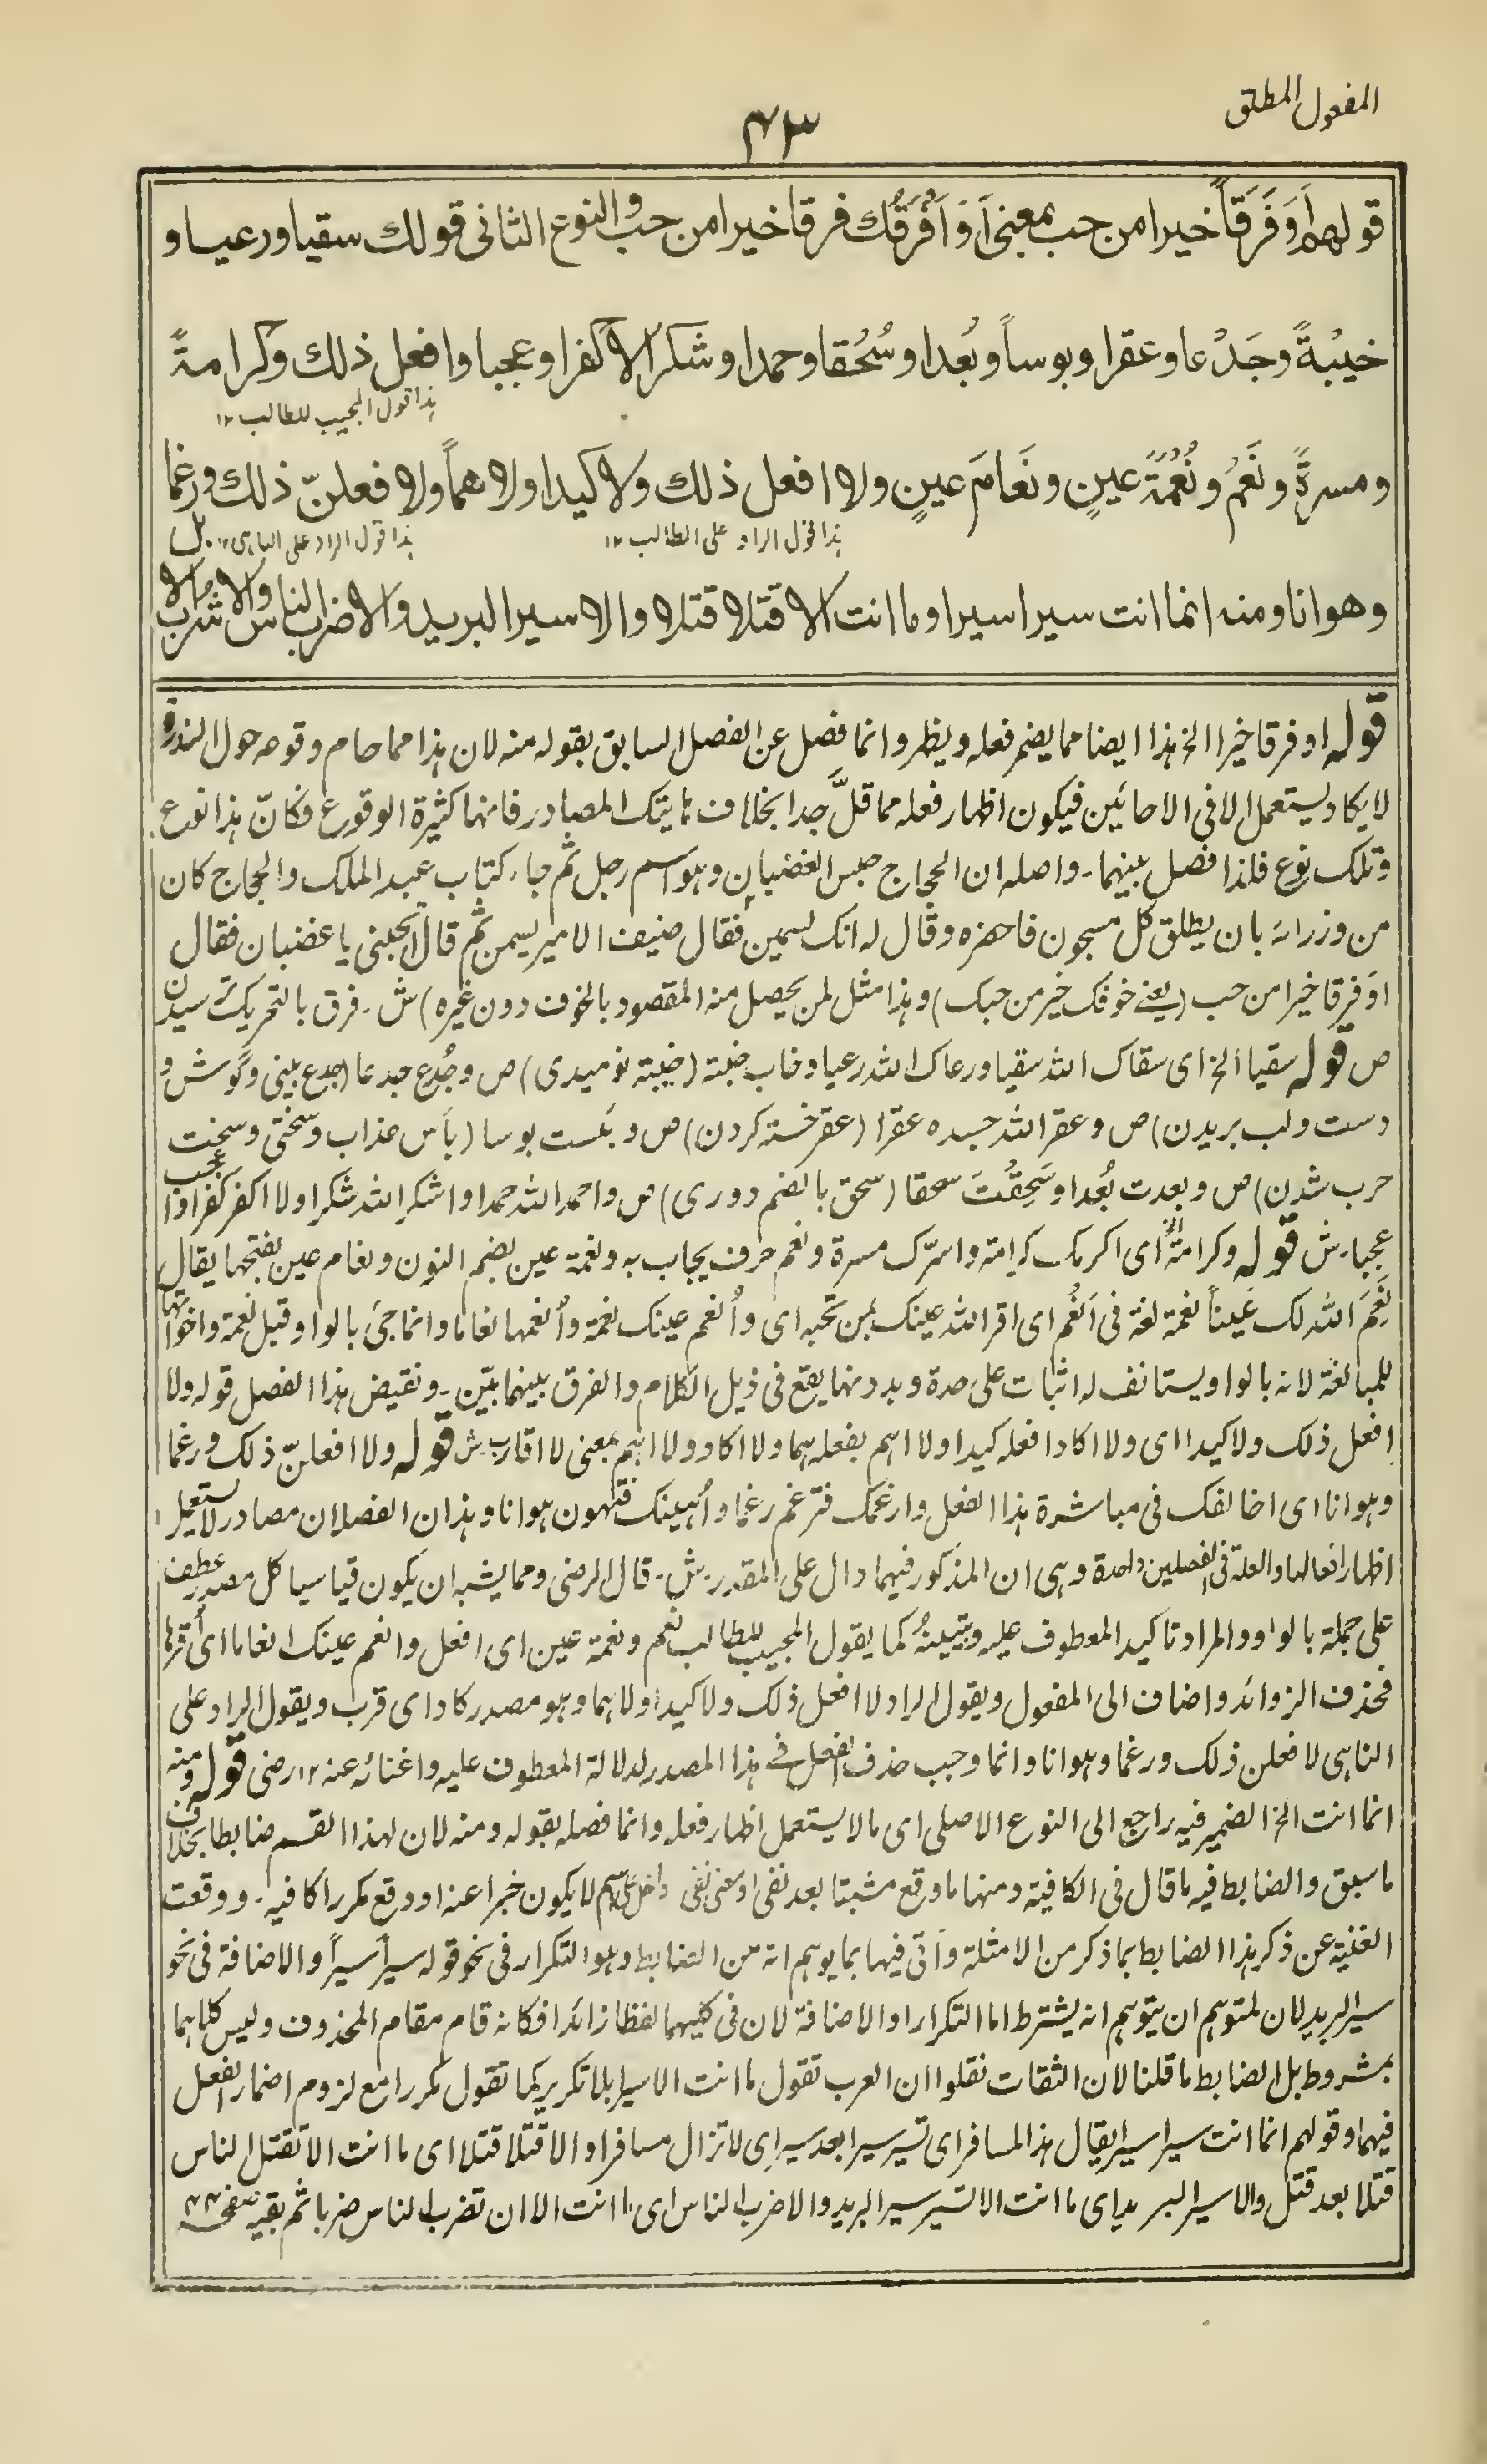 المفعول المطلق
٤٣
قولهم اَوَفَرَقًا خيرا من حب بمعنى اَوَ اَفْرَقُكَ فرقا خيرا من حب والنوع الثانى قولك سقيا ورعيا و
خيبةً وجَدْعا وعقرا وبوساً وبُعدا وسُحُقا وحمدا وشكرا لا كفرا وعجبا وافعل ذلك وكرامةً
هذا قول المجيب للطالب ١٢
ومسرةً ونَعَمْ ونُعْمَةَ عينٍ ونَعَامَ عينٍ ولا افعل ذلك ولا كيدا ولا هماً ولا فعلنّ ذلك ورغما
هذا قول الراد على الطالب ١٢
هذا قول الراد على الناهى ١٢
وهوانا ومنه انما انت سيرا سيرا وما انت الا قتلا قتلا والا سير البريد والا ضرب الناس والا شرب الابل
قوله اوفرقا خيرا الخ هذا ايضا مما يضمر فعله ويظهر وانما فصل عن الفصل السابق بقوله منه لان هذا مما حام وقوعه حول الندرة
لا يكاد يستعمل الا فى الاحائين فيكون اظهار فعله مما قلَّ جدا بخلاف ما يتك المصادر فانها كثيرة الوقوع فكانّ هذا نوع
وتلك نوع فلذا فصل بينهما۔ واصله ان الحجاج حبس الغضبان وهو اسم رجل ثم جاء كتاب عبد الملك والحجاج كان
من وزرائه بان يطلق كل مسجون فاحضره وقال له انك لسمين فقال ضيف الامير يسمن ثم قال اتحبنى يا غضبان فقال
اوَ فرقا خيرا من حب (يعنى خوفك خير من حبك) وهذا مثل لمن يحصل منه المقصود بالخوف دون غيره) ش۔ فرق بالتحريك ترسيدن
ص قوله سقيا الخ اى سقاك الله سقيا ورعاك الله رعيا وخاب خيبة (خيبة نوميدى) ص وجُدِع جدعا (جدع بينى وگوش و
دست ولب بريدن) ص وعقر الله جسده عقرا (عقر خسته كردن) ص وبئست بوسا (بأس عذاب وسختى وسخت
حرب شدن) ص وبعدت بُعدا وسَحِقْتَ سحقا (سحق بالضم دورى) ص واحمد الله حمدا واشكر الله شكرا ولا اكفر كفرا واعجب
عجبا۔ ش قوله وكرامة الخ اى اكرمك كرامة واسرّك مسرة ونعم حرف يجاب به ونعمة عين بضم النون ونعام عين بفتحها يقال
نَعِمَ الله لك عَيناً نعمة لغة فى اَنْعَم اى اقر الله عينك بمن تحبه اى واُنعم عينك نعمة واُنعمها نعاما وانما جئ بالواو قبل نعمة واخواتها
للمبالغة لانه بالواو يستانف له اثبات على حدة وبدونها يقع فى ذيل الكلام والفرق بينهما بيّن۔ ونقيض هذا الفصل قوله ولا
افعل ذلك ولا كيدا اى ولا اكاد افعله كيدا ولا اهم بفعله هما ولا اكاد ولا اهم بمعنى لا اقارب۔ ش قوله ولا افعلنّ ذلك ورغما
وهوانا اى اخالفك فى مباشرة هذا الفعل وارغمك فترغم رغما واُهينك فتهون هوانا وهذان الفصلان مصادر لا يستعمل
اظهار افعالها والعلة فى الفصلين واحدة وهى ان المذكور فيهما دال على المقدر۔ ش۔ قال الرضى ومما يشبه ان يكون قياسيا كل مصدر عطف
على جملة بالواو والمراد تاكيد المعطوف عليه وتبيينهُ كما يقول المجيب للطالب نعم ونعمة عين اى افعل وانعم عينك انعاما اى اُقرها
فحذف الزوائد واضاف الى المفعول ويقول الراد لا افعل ذلك ولا كيدا ولا هما وهو مصدر كاد اى قرب ويقول الراد على
الناهى لا فعلن ذلك ورغما وهوانا وانما وجب حذف الفعل فى هذا المصدر لدلالة المعطوف عليه واغنائه عنه ١٢ رضى قوله ومنه
انما انت الخ الضمير فيه راجع الى النوع الاصلى اى ما لا يستعمل اظهار فعله وانما فصله بقوله ومنه لان لهذا القسم ضابطا بخلاف
ما سبق والضابط فيه ما قال فى الكافية ومنها ما وقع مثبتا بعد نفى او معنى نفى داخل على اسم لا يكون خبرا عنه او وقع مكررا كافيه۔ ووقعت
الغنية عن ذكر هذا الضابط بما ذكر من الامثلة واَتى فيها بما يوهم انه من الضابط وهو التكرار فى نحو قوله سيراً سيراً والاضافة فى نحو
سير البريد لان لمتوهم ان يتوهم انه يشترط اما التكرار او الاضافة لان فى كليهما لفظا زائدا فكانه قام مقام المحذوف وليس كلاهما
بمشروط بل الضابط ما قلنا لان الثقات نقلوا ان العرب تقول ما انت الا سيرا بلا تكرير كما تقول مكررا مع لزوم اضمار الفعل
فيهما وقولهم انما انت سيرا سيرا يقال هذا لمسافر اى تسير سيرا بعد سير اى لا تزال مسافرا والا قتلا قتلا اى ما انت الا تقتل الناس
قتلا بعد قتل والا سير البريد اى ما انت الا تسير سير البريد والا ضرب الناس اى ما انت الا ان تضرب الناس ضربا ثم بقيه صفحه ٤٤